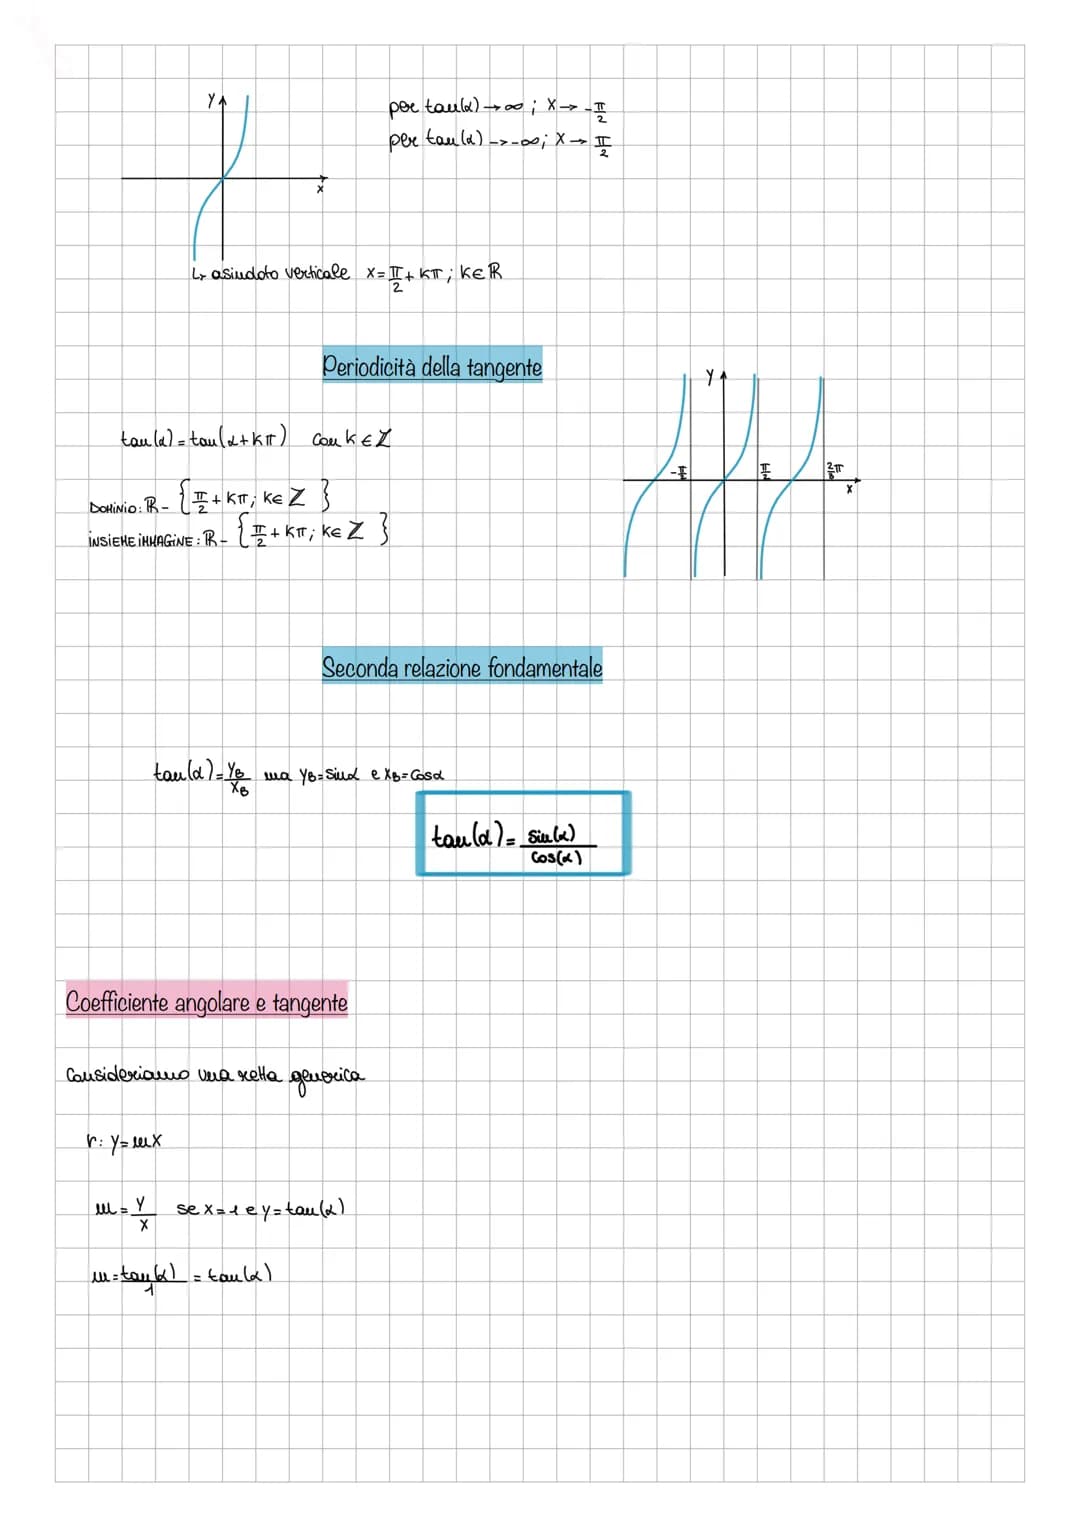 Y
x
per tan(α)→∞ ; X→ -π/2
per tan(α) -> -∞; X→ π/2
↳ asindoto verticale x=π/2+ Kπ ; K∈ℝ
Periodicità della tangente
Y
-π/2
π/2
x
tan(α)=tan(α+Kπ) con k∈ℤ
DOMINIO: ℝ- {π/2+ Kπ; K∈ ℤ }
INSIEME IMMAGINE: ℝ- {π/2+ Kπ; K∈ ℤ }
Seconda relazione fondamentale
tan(α)=YB/XB ma YB=sinα e XB=cosα
tan(α)= sin(α)/cos(α)
Coefficiente angolare e tangente
Consideriamo una retta generica
r: y=mx
m=Y/X se x=1 e y=tan(α)
m=tan(α)/1 = tan(α)